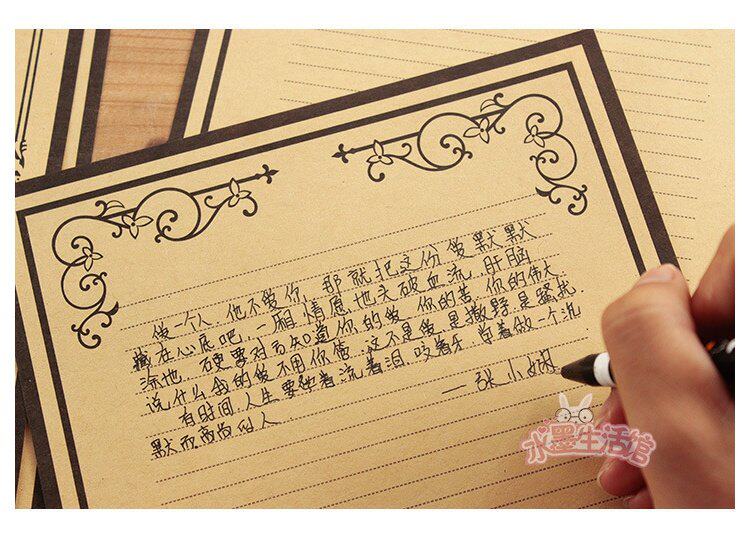 爱一个人 他不爱你，那就把这份爱默默
藏在心底吧，一厢情愿地头破血流 肝脑
涂地，硬要对方知道你的爱 你的苦 你的伟大
说什么我的爱不用你管，这不是爱 是撒野 是骚扰
有时间，人生要 着流着泪，咬着牙，学着做一个沉
默而高尚的人
——张小娴
水墨生活馆